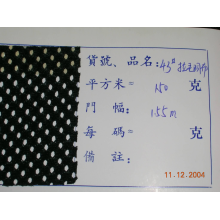 貨號、品名:43#拉毛網布
平方米= 150 克
門 幅: 155m
每 碼= 克
備 註:
11.12.2004